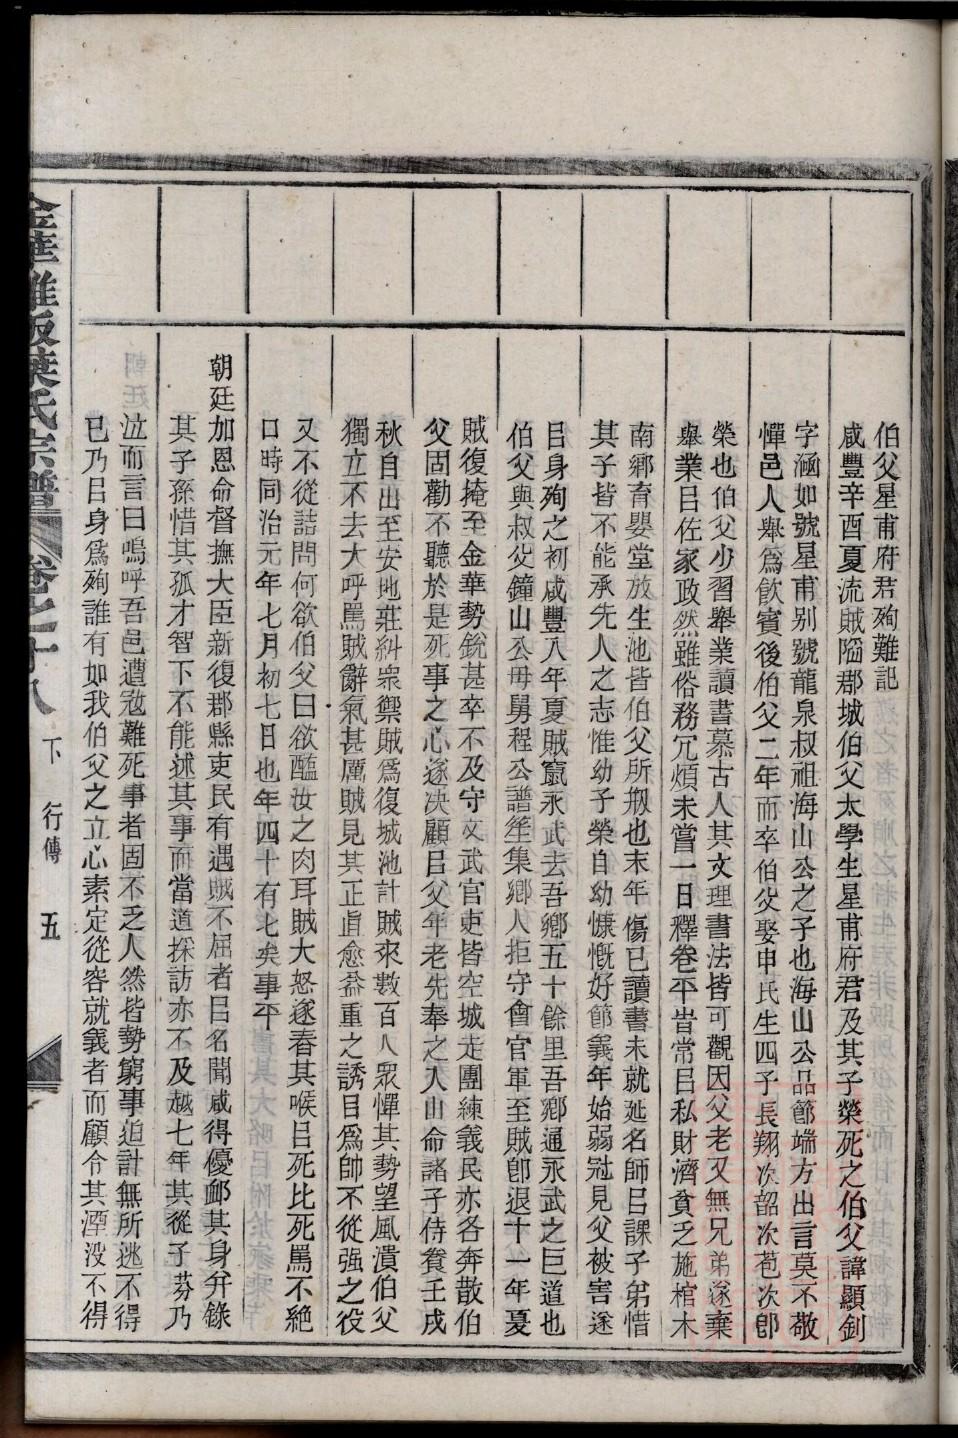 伯父星甫府君殉難記
咸豐辛酉夏流賊陷郡城伯父太學生星甫府君及其子榮死之伯父諱顯釗
字涵如號星甫别號龍泉叔祖海山公之子也海山公品節端方出言莫不敬
憚邑人舉爲飲賓後伯父二年而卒伯父娶申氏生四子長翔次韶次苞次卽
榮也伯父少習舉業讀書慕古人其文理書法皆可觀因父老又無兄弟遂棄
舉業㠯佐家政然雖俗務冗煩未嘗一日釋卷平昔常㠯私財濟貧乏施棺木
南鄉育嬰堂放生池皆伯父所剏也末年傷已讀書未就延名師㠯課子弟惜
其子皆不能承先人之志惟幼子榮自幼慷慨好節義年始弱冠見父被害遂
㠯身殉之初咸豐八年夏賊竄永武去吾鄉五十餘里吾鄉通永武之巨道也
伯父與叔父鐘山公母舅程公譜笙集鄉人拒守會官軍至賊卽退十一年夏
賊復掩至金華勢銳甚卒不及守文武官吏皆空城走團練義民亦各奔散伯
父固勸不聽於是死事之心遂决顧㠯父年老先奉之入山命諸子侍養壬戌
秋自出至安地莊糾衆禦賊爲復城池計賊來數百人眾憚其勢望風潰伯父
獨立不去大呼罵賊辭氣甚厲賊見其正直愈益重之誘㠯爲帥不從强之役
又不從詰問何欲伯父曰欲醢汝之肉耳賊大怒遂舂其喉㠯死比死罵不絕
口時同治元年七月初七日也年四十有七矣事平
朝廷加恩命督撫大臣新復郡縣吏民有遇賊不屈者㠯名聞咸得優䘏其身弁錄
其子孫惜其孤才智下不能述其事而當道採訪亦不及越七年其從子芬乃
泣而言曰嗚呼吾邑遭寇難死事者固不乏人然皆勢窮事迫計無所逃不得
已乃㠯身爲殉誰有如我伯父之立心素定從容就義者而顧令其湮沒不得
金華雅坂葉氏宗譜 卷之十八 下 行傳 五